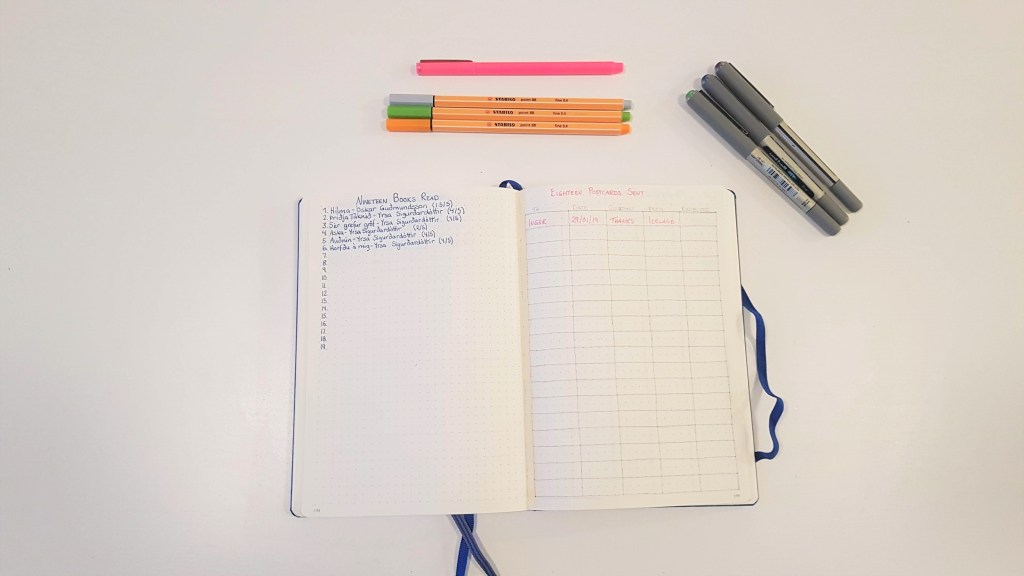 STABILO point 88 fine 0,4
STABILO point 88 fine 0,4
STABILO point 88 fine 0,4
NINETEEN BOOKS READ
1. Hilma - Óskar Guðmundsson (1.5/5)
2. Þriðja Táknið - Yrsa Sigurðardóttir (4/5)
3. Sér grefur gröf - Yrsa Sigurðardóttir
4. Aska - Yrsa Sigurðardóttir
5. Auðnin - Yrsa Sigurðardóttir (4/5)
6. Horfðu á mig - Yrsa Sigurðardóttir (4/5)
7.
8.
9.
10.
11.
12.
13.
14.
15.
16.
17.
18.
19.
EIGHTEEN POSTCARDS SENT
TO DATE
29/01/19 ICELAND